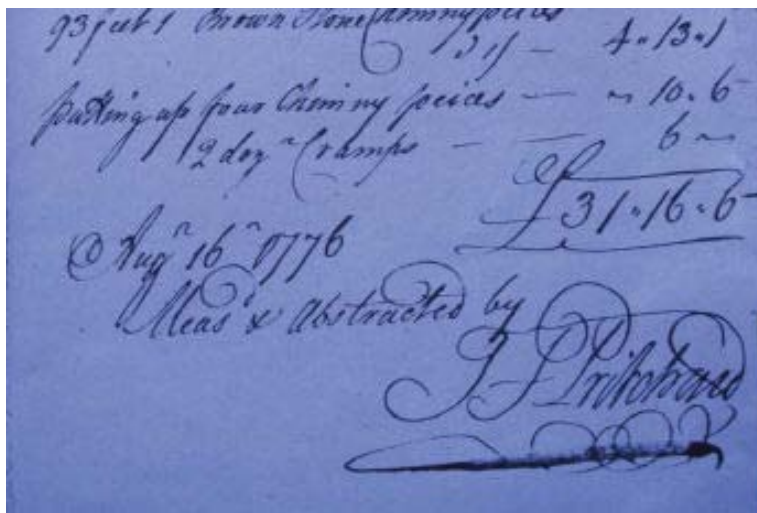 93 feet 1 Brown Stone Chimny peices
4 " 13 " 1
putting up four Chimny peices — " 10 " 6
2 dozn Cramps — — 6 "
£31 " 16 " 6
Augn 16n 1776
Measd & Abstracted by
T F Pritchard